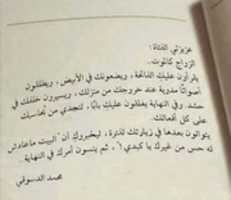 عزيزتي الفتاة:
الزواج كالموت.
يقرأون عليك الفاتحة، ويضعونك في الأبيض، ويطلقون
أصواتًا مدوية عند خروجك من منزلك، ويسيرون خلفك في
حشد. وفي النهاية يغلقون عليك بابًا، لتجدي من يُحاسبك
على كل أفعالك.
يتوالون بعدها في زيارتك لفترة، ليخبروك أن "البيت ماعادش
له حس من غيرك يا كبدي"، ثم ينسون أمرك في النهاية.
محمد الدسوقي